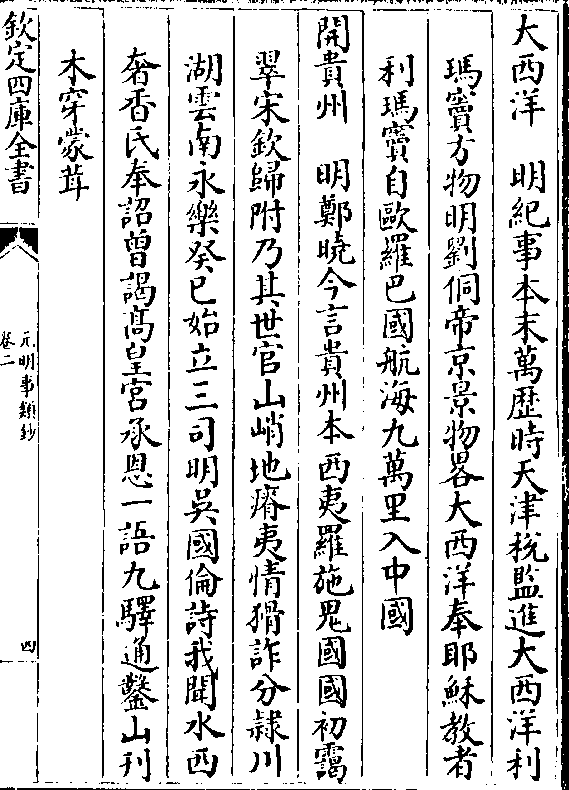 大西洋　明紀事本末萬歴時天津稅監進大西洋利
瑪竇方物明劉侗帝京景物畧大西洋奉耶穌教者
利瑪竇自歐羅巴國航海九萬里入中國
開貴州　明鄭曉今言貴州本西夷羅施鬼國國初靄
翠宋欽歸附乃其世官山峭地瘠夷情猾詐分隸川
湖雲南永樂癸巳始立三司明吳國倫詩我聞水西
奢香氏奉詔曾謁髙皇宮承恩一語九驛通鑿山刋
木穿蒙茸
欽定四庫全書
元明事類鈔
卷二
四